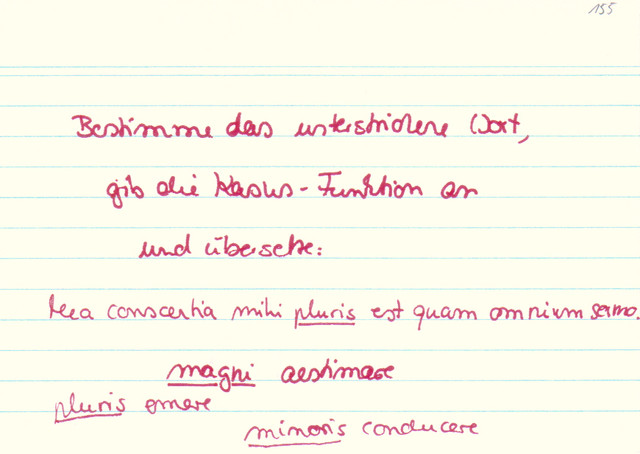 155
Bestimme das unterstrichene Wort,
gib die Kasus-Funktion an
und übersetze:
Mea conscientia mihi pluris est quam omnium sermo.
magni aestimare
pluris emere
minoris conducere